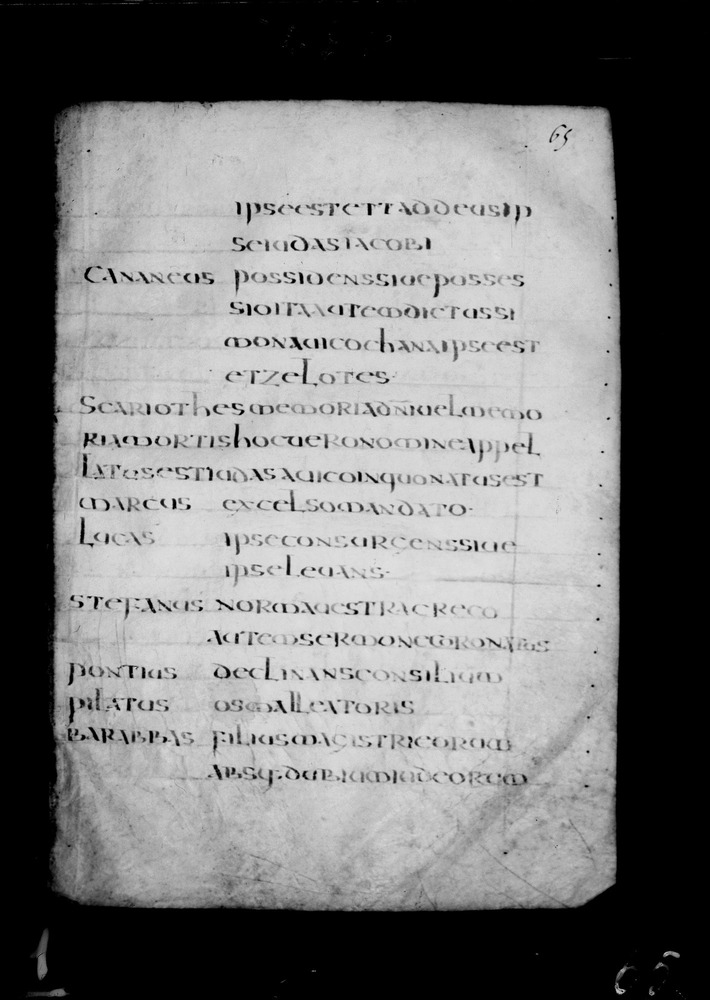 65
ipseestettaddeusip
seiudasiacobi
Cananeus possidenssiueposses
sioitaautemdictussi
monauicochanaipseest
etzelotes·
Scariothesmemoriadn̄iuelmemo
riamortishocueronomineappel
latusestiudasauicoinquonatusest
marcus excelsomandato·
Lucas ipseconsurgenssiue
ipseleuans·
stefanus normauestra
autemsermone
pontius declinansconsilium
pilatus osmalleatoris
barabbas filiusmagistrieorum
absq·dubiumiudeorum
1
65